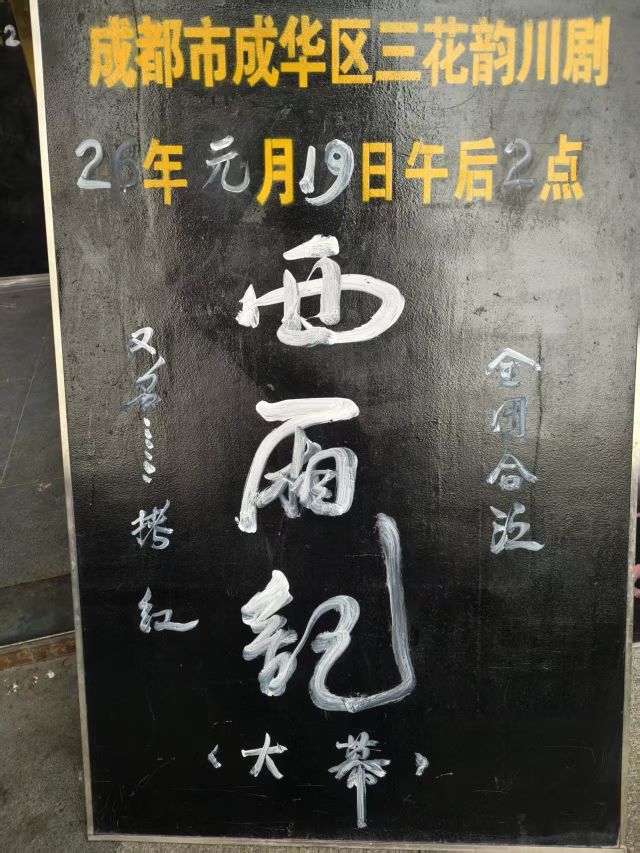 成都市成华区三花韵川剧
26年元月19日午后2点
西厢记
全团合演
又名……拷红
(大幕)
2